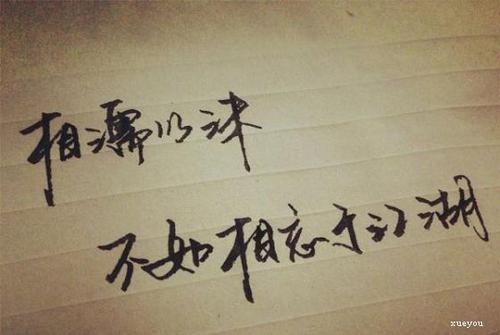 相濡以沫
不如相忘于江湖
xueyou